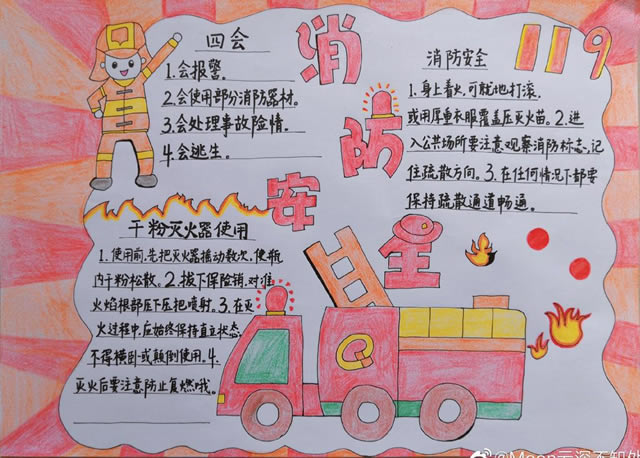 四会
1.会报警。
2.会使用部分消防器材。
3.会处理事故险情。
4.会逃生。
消防安全
消防安全
1.身上着火,可就地打滚,
或用厚重衣服覆盖压灭火苗。2.进
入公共场所要注意观察消防标志,记
住疏散方向。3.在任何情况下都要
保持疏散通道畅通。
119
干粉灭火器使用
1.使用前,先把灭火器摇动数次,使瓶
内干粉松散。2.拔下保险销,对准
火焰根部压下压把喷射。3.在灭
火过程中,应始终保持直立状态,
不得横卧或颠倒使用。4.
灭火后要注意防止复燃哦。